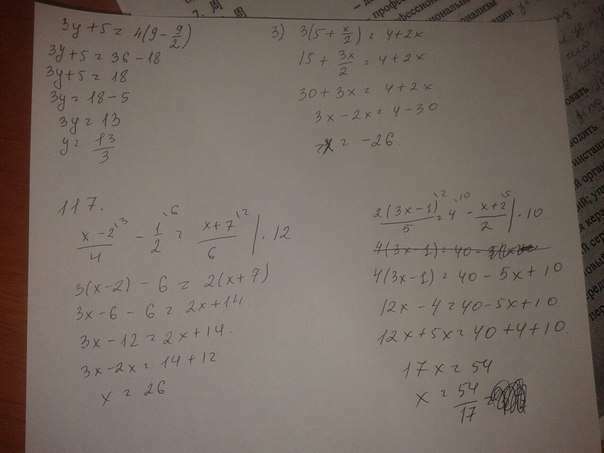 3y + 5 = 4(9 - 9/2)
3y + 5 = 36 - 18
3y + 5 = 18
3y = 18 - 5
3y = 13
y = 13/3
3) 3(5 + x/2) = 4 + 2x
15 + 3x/2 = 4 + 2x
30 + 3x = 4 + 2x
3x - 2x = 4 - 30
x = -26.
117.
x - 2\3/4 - 1\6/2 = x + 7\2/6 | · 12
3(x - 2) - 6 = 2(x + 7)
3x - 6 - 6 = 2x + 14
3x - 12 = 2x + 14.
3x - 2x = 14 + 12
x = 26
2(3x - 1)\2/5 = 4\10 - x + 2\5/2 | · 10
4(3x - 1) = 40 -
4(3x - 1) = 40 - 5x + 10
12x - 4 = 40 - 5x + 10
12x + 5x = 40 + 4 + 10
17x = 54
x = 54/17 =